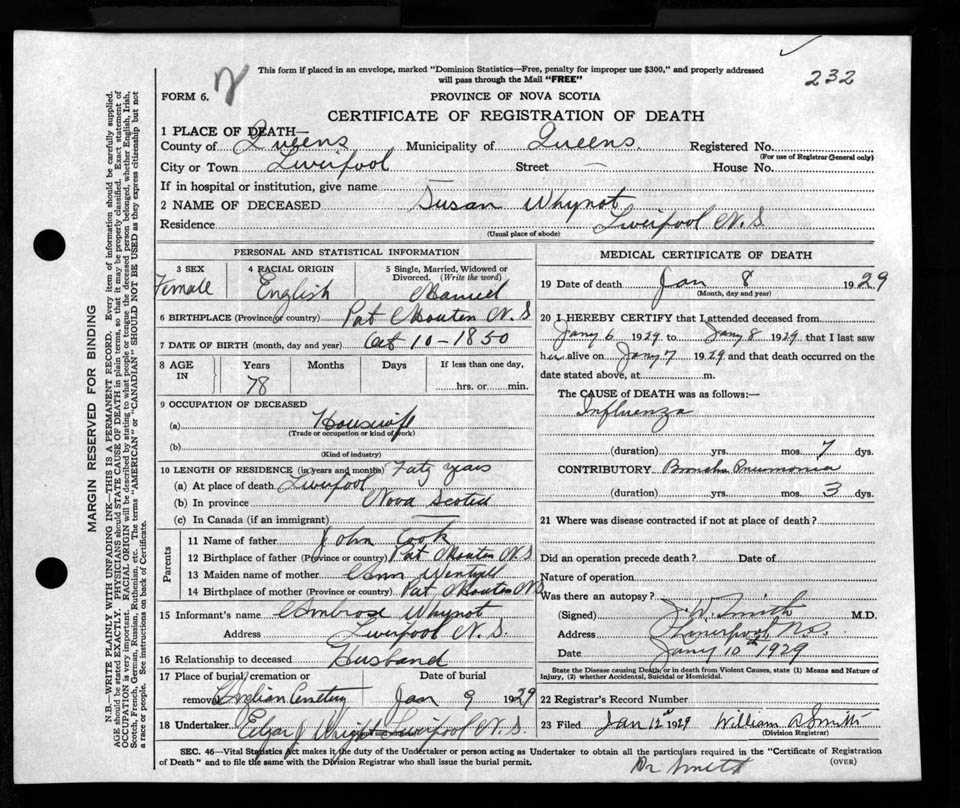 232
2
This form if placed in an envelope, marked "Dominion Statistics—Free, penalty for improper use $300," and properly addressed
will pass through the Mail "FREE"
FORM 6.
PROVINCE OF NOVA SCOTIA
CERTIFICATE OF REGISTRATION OF DEATH
1 PLACE OF DEATH—
County of Queens Municipality of Queens. Registered No.
(For use of Registrar General only)
City or Town Liverpool Street — House No.
If in hospital or institution, give name —
2 NAME OF DECEASED Susan Whynot
Residence Liverpool N.S.
(Usual place of abode)
PERSONAL AND STATISTICAL INFORMATION
3 SEX 4 RACIAL ORIGIN 5 Single, Married, Widowed or
Divorced. (Write the word)
Female English Married
6 BIRTHPLACE (Province or country) Port Mouton N.S
7 DATE OF BIRTH (month, day and year) Oct 10–1850
8 AGE IN Years Months Days If less than one day,
78 hrs. or min.
9 OCCUPATION OF DECEASED
(a) Housewife
(Trade or occupation or kind of work)
(b)
(Kind of industry)
10 LENGTH OF RESIDENCE (in years and months) Forty years
(a) At place of death Liverpool
(b) In province Nova Scotia
(c) In Canada (if an immigrant) —
Parents
11 Name of father John Cook
12 Birthplace of father (Province or country) Port Mouton N.S
13 Maiden name of mother Ann Wentzell
14 Birthplace of mother (Province or country) Port Mouton N.S
15 Informant's name Ambrose Whynot
Address Liverpool N.S.
16 Relationship to deceased Husband
17 Place of burial, cremation or Date of burial
removal Anglican Cemetery Jan 9 1929
18 Undertaker Edgar J Wright Liverpool N.S.
MEDICAL CERTIFICATE OF DEATH
19 Date of death Jan 8 1929
(Month, day and year)
20 I HEREBY CERTIFY that I attended deceased from
Jany 6 1929 to Jany 8 1929 that I last saw
her alive on Jany 7 1929 and that death occurred on the
date stated above, at m.
The CAUSE OF DEATH was as follows:—
Influenza
(duration) yrs. mos. 7 dys.
CONTRIBUTORY Broncho Pneumonia
(duration) yrs. mos. 3 dys.
21 Where was disease contracted if not at place of death?
Did an operation precede death? Date of
Nature of operation
Was there an autopsy?
(Signed) J. W. Smith M.D.
Address Liverpool N.S.
Date Jany 10th 1929
State the Disease causing Death, or in death from Violent Causes, state (1) Means and Nature of
Injury, (2) whether Accidental, Suicidal or Homicidal.
22 Registrar's Record Number
23 Filed Jan 12th 1929 William D Smith
(Division Registrar)
SEC. 46—Vital Statistics Act makes it the duty of the Undertaker or person acting as Undertaker to obtain all the particulars required in the "Certificate of Registration
of Death" and to file the same with the Division Registrar who shall issue the burial permit. (OVER)
Dr Smith
MARGIN RESERVED FOR BINDING
N.B.—WRITE PLAINLY WITH UNFADING INK—THIS IS A PERMANENT RECORD. Every item of information should be carefully supplied.
AGE should be stated EXACTLY. PHYSICIANS should STATE CAUSE OF DEATH in plain terms, so that it may be properly classified. Exact statement of
OCCUPATION is very important. RACIAL ORIGIN will be described by stating to what people or tongue the deceased person belonged, whether English, Irish,
Scotch, French, German, Russian, Ruthenian, etc. The terms "AMERICAN" or "CANADIAN" SHOULD NOT BE USED as they express citizenship but not
a race or people. See instructions on back of Certificate.